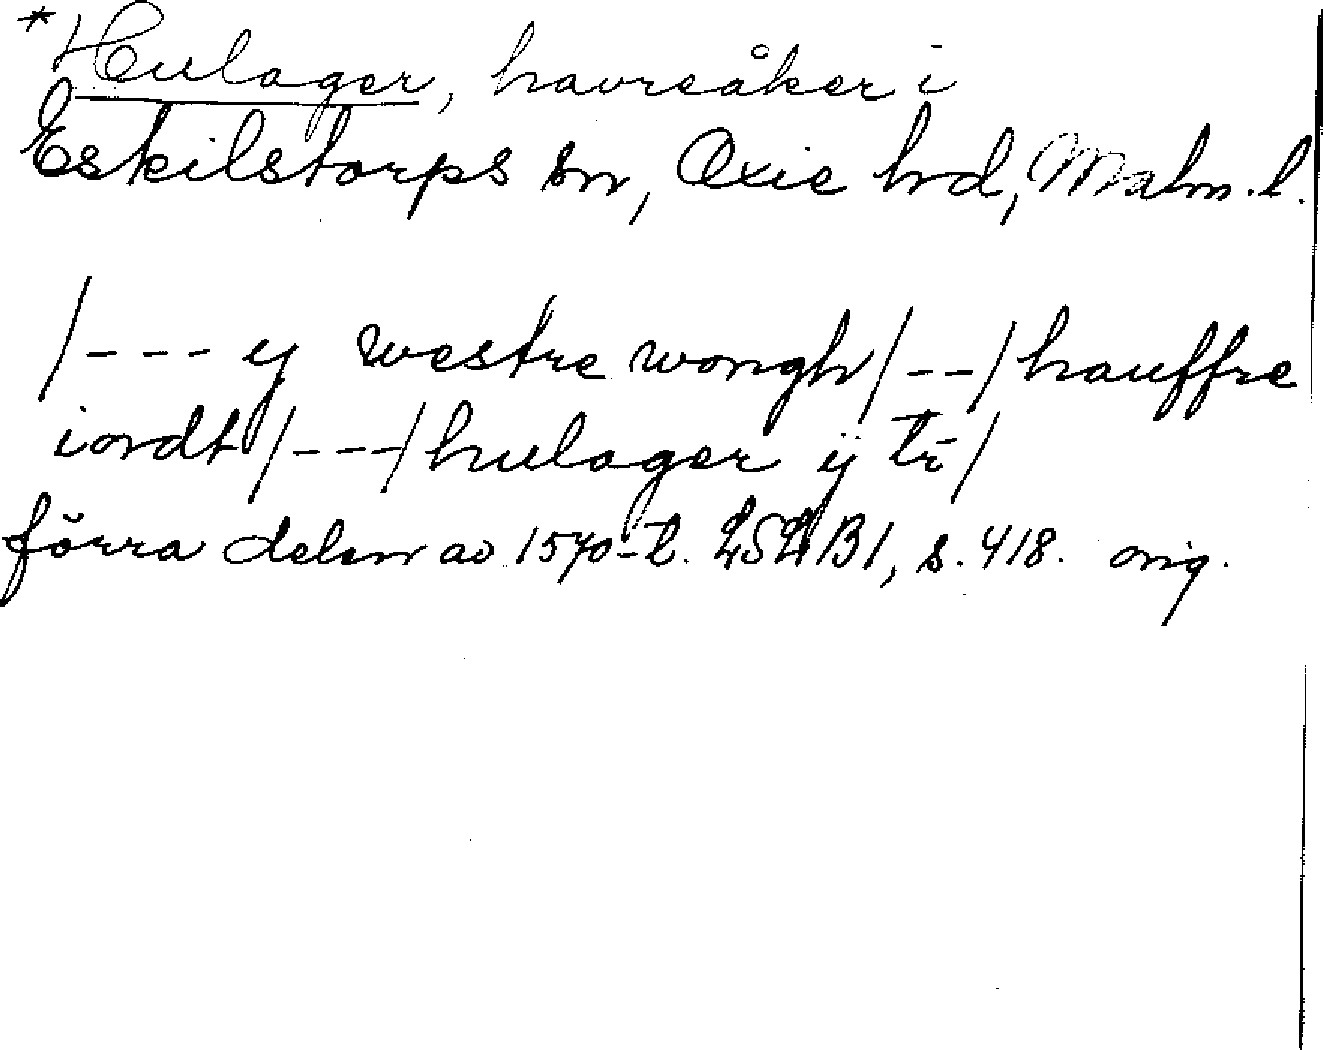 *Hulager, havreåker i
Eskilstorps sn, Oxie hd, Malm. l.
/--- y westre wongh/--/hauffre
iordt/---/hulager ÿ tr/
förra delen av 1570-t. LSLB1, s. 418. orig.